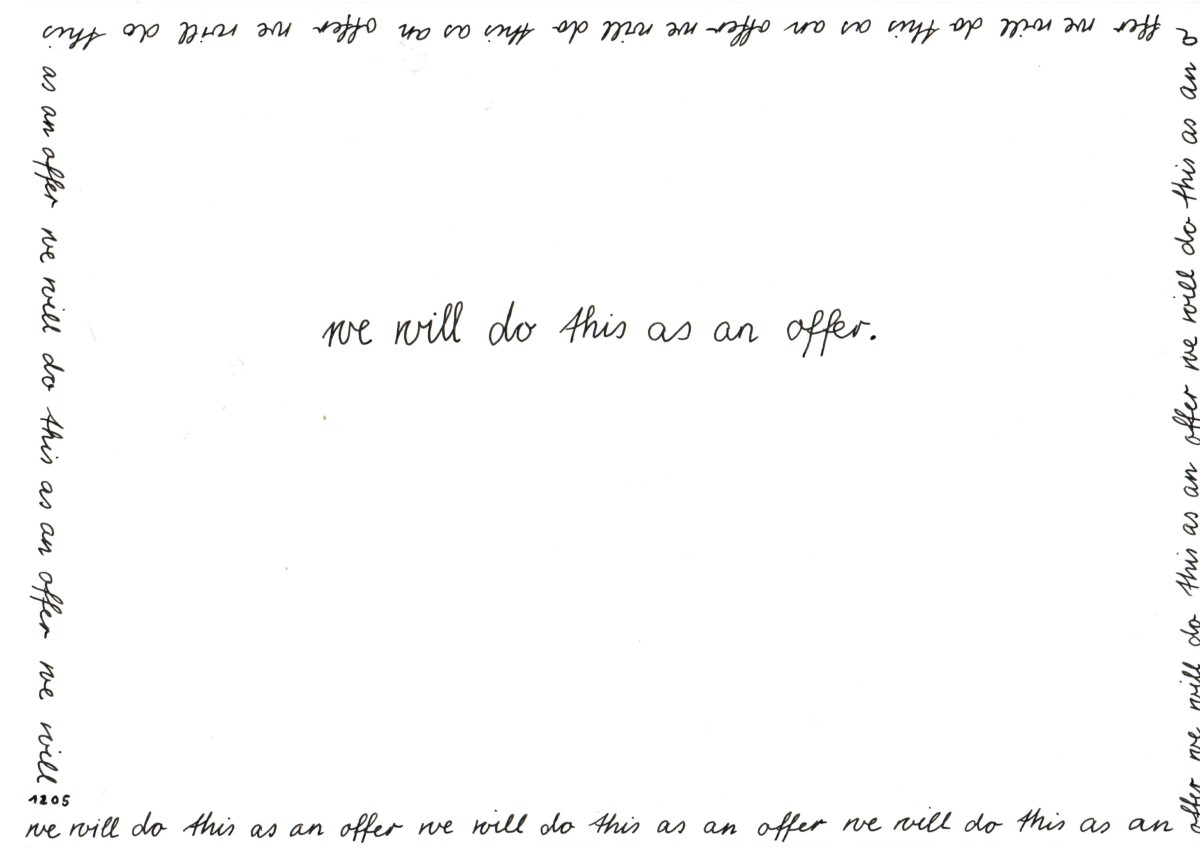 ffer we will do this as an offer we will do this as an offer we will do this
as an offer we will do this as an offer we will
we will do this as an offer.
1205
we will do this as an offer we will do this as an offer we will do this as an
offer we will do this as an offer we will do this as an o